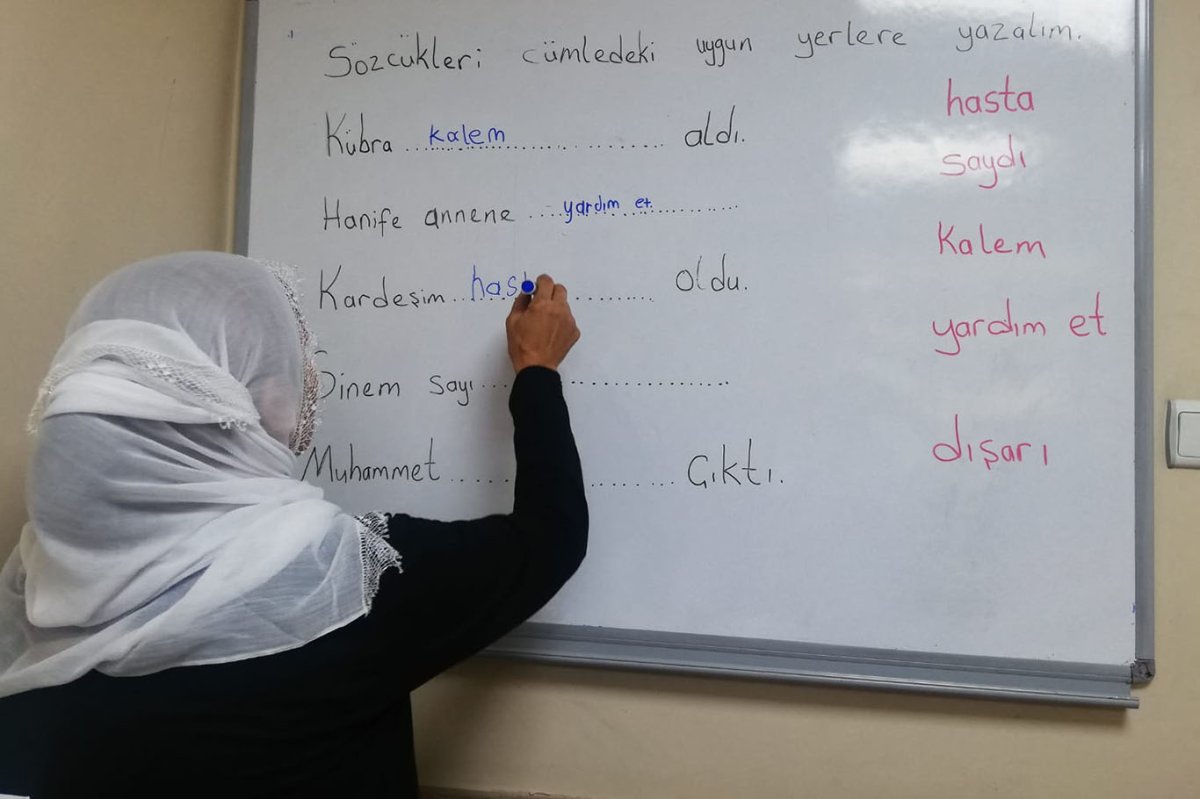 Sözcükleri cümledeki uygun yerlere yazalım.
Kübra ..... kalem ..... aldı.
Hanife annene ..... yardım et. .....
Kardeşim ..... has ..... oldu.
Sinem sayı ..........
Muhammet .......... Çıktı.
hasta
saydı
Kalem
yardım et
dışarı